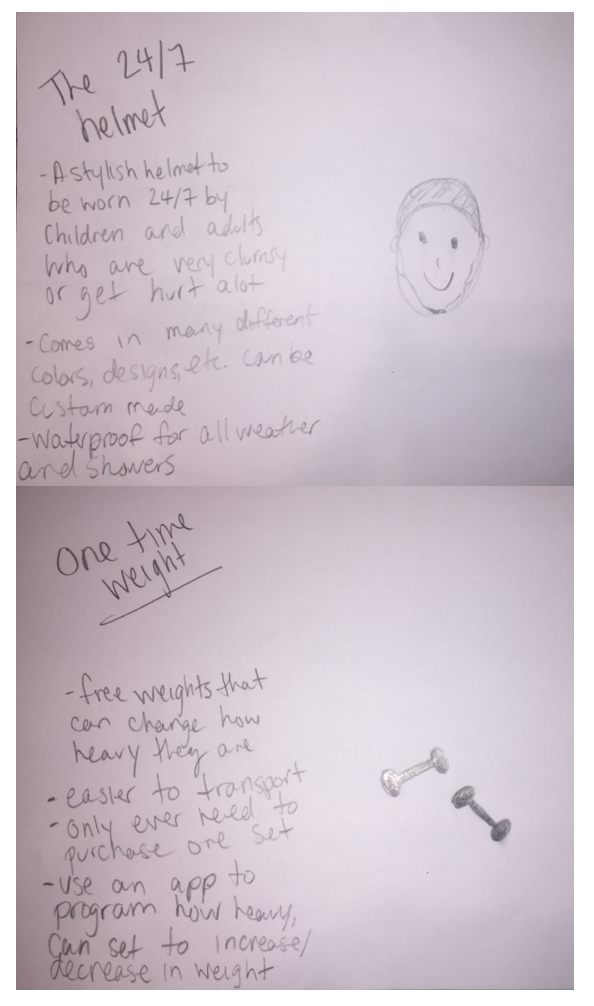 The 24/7
helmet
-A stylish helmet to
be worn 24/7 by
Children and adults
who are very clumsy
or get hurt alot
-Comes in many different
colors, designs, etc. can be
custom made
-Waterproof for all weather
and showers
One time
weight
-free weights that
can change how
heavy they are
- easier to transport
- only ever need to
purchase one set
-use an app to
program how heavy,
Can set to increase/
decrease in weight